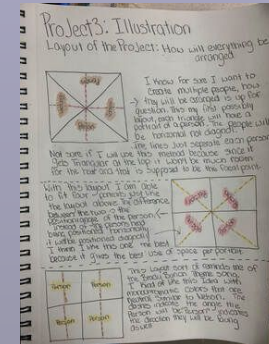 Project 3: Illustration
Layout of the Project: How will everything be
arranged
I know for sure I want to
create multiple people, how
they will be arranged is up for
question. This my first possible
layout, each triangle will have a
portrait of a person. The people will
be horizontal not diagonal.
The lines just separate each person
Not sure if I will use this method because since it
gets triangular at the top it won't be much room
for the head and that is supposed to be the focal point.
With this layout I am able
to fit four portraits just like
the layout above. The difference
between the two is the
position/angle of the person
instead of the person
being positioned horizontally
it will be positioned diagonally
I think I like this one the best
because it gives the best use of space per portrait
Person
Person
Person
Person
This layout sort of reminds me of
the Brady Bunch theme song
I kind of like this idea with
monochromatic colors that are
neutral similar to
the angle the
person will be
the direction they will be facing